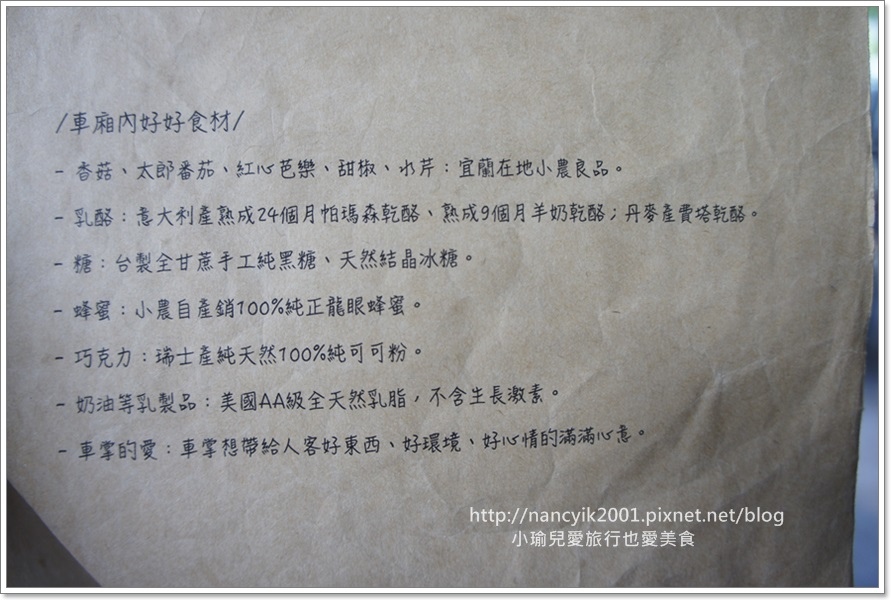 /車廂內好好食材/
- 香菇、太郎番茄、紅心芭樂、甜椒、水芹：宜蘭在地小農良品。
- 乳酪：意大利產熟成24個月帕瑪森乾酪、熟成9個月羊奶乾酪；丹麥產費塔乾酪。
- 糖：台製全甘蔗手工純黑糖、天然結晶冰糖。
- 蜂蜜：小農自產銷100%純正龍眼蜂蜜。
- 巧克力：瑞士產純天然100%純可可粉。
- 奶油等乳製品：美國AA級全天然乳脂，不含生長激素。
- 車掌的愛：車掌想帶給人客好東西、好環境、好心情的滿滿心意。
http://nancyik2001.pixnet.net/blog
小瑜兒愛旅行也愛美食